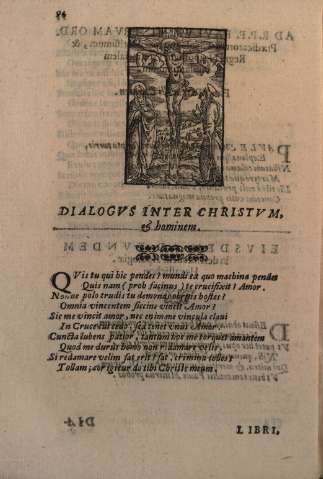 84
DIALOGVS INTER CHRISTVM,
& hominem.
QVis tu qui hic pendes? mundi ex quo machina pendes
Quis nam (proh facinus) te crucifixit? Amor.
Nonne polo trudis tu demonas hostes?
Omnia vincentem siccine vincit Amor?
Sic me vincit amor, nec enim me vincula claui
In Cruce sed tenet vnus Amor.
Cuncta lubens patior, tantùm me torquet amantem
Quod me durus homo non redamare velit.
Si redamare velim sat erit? sat, crimina tolles?
Tollam; cor igitur do tibi Christe meum.
LIBRI,